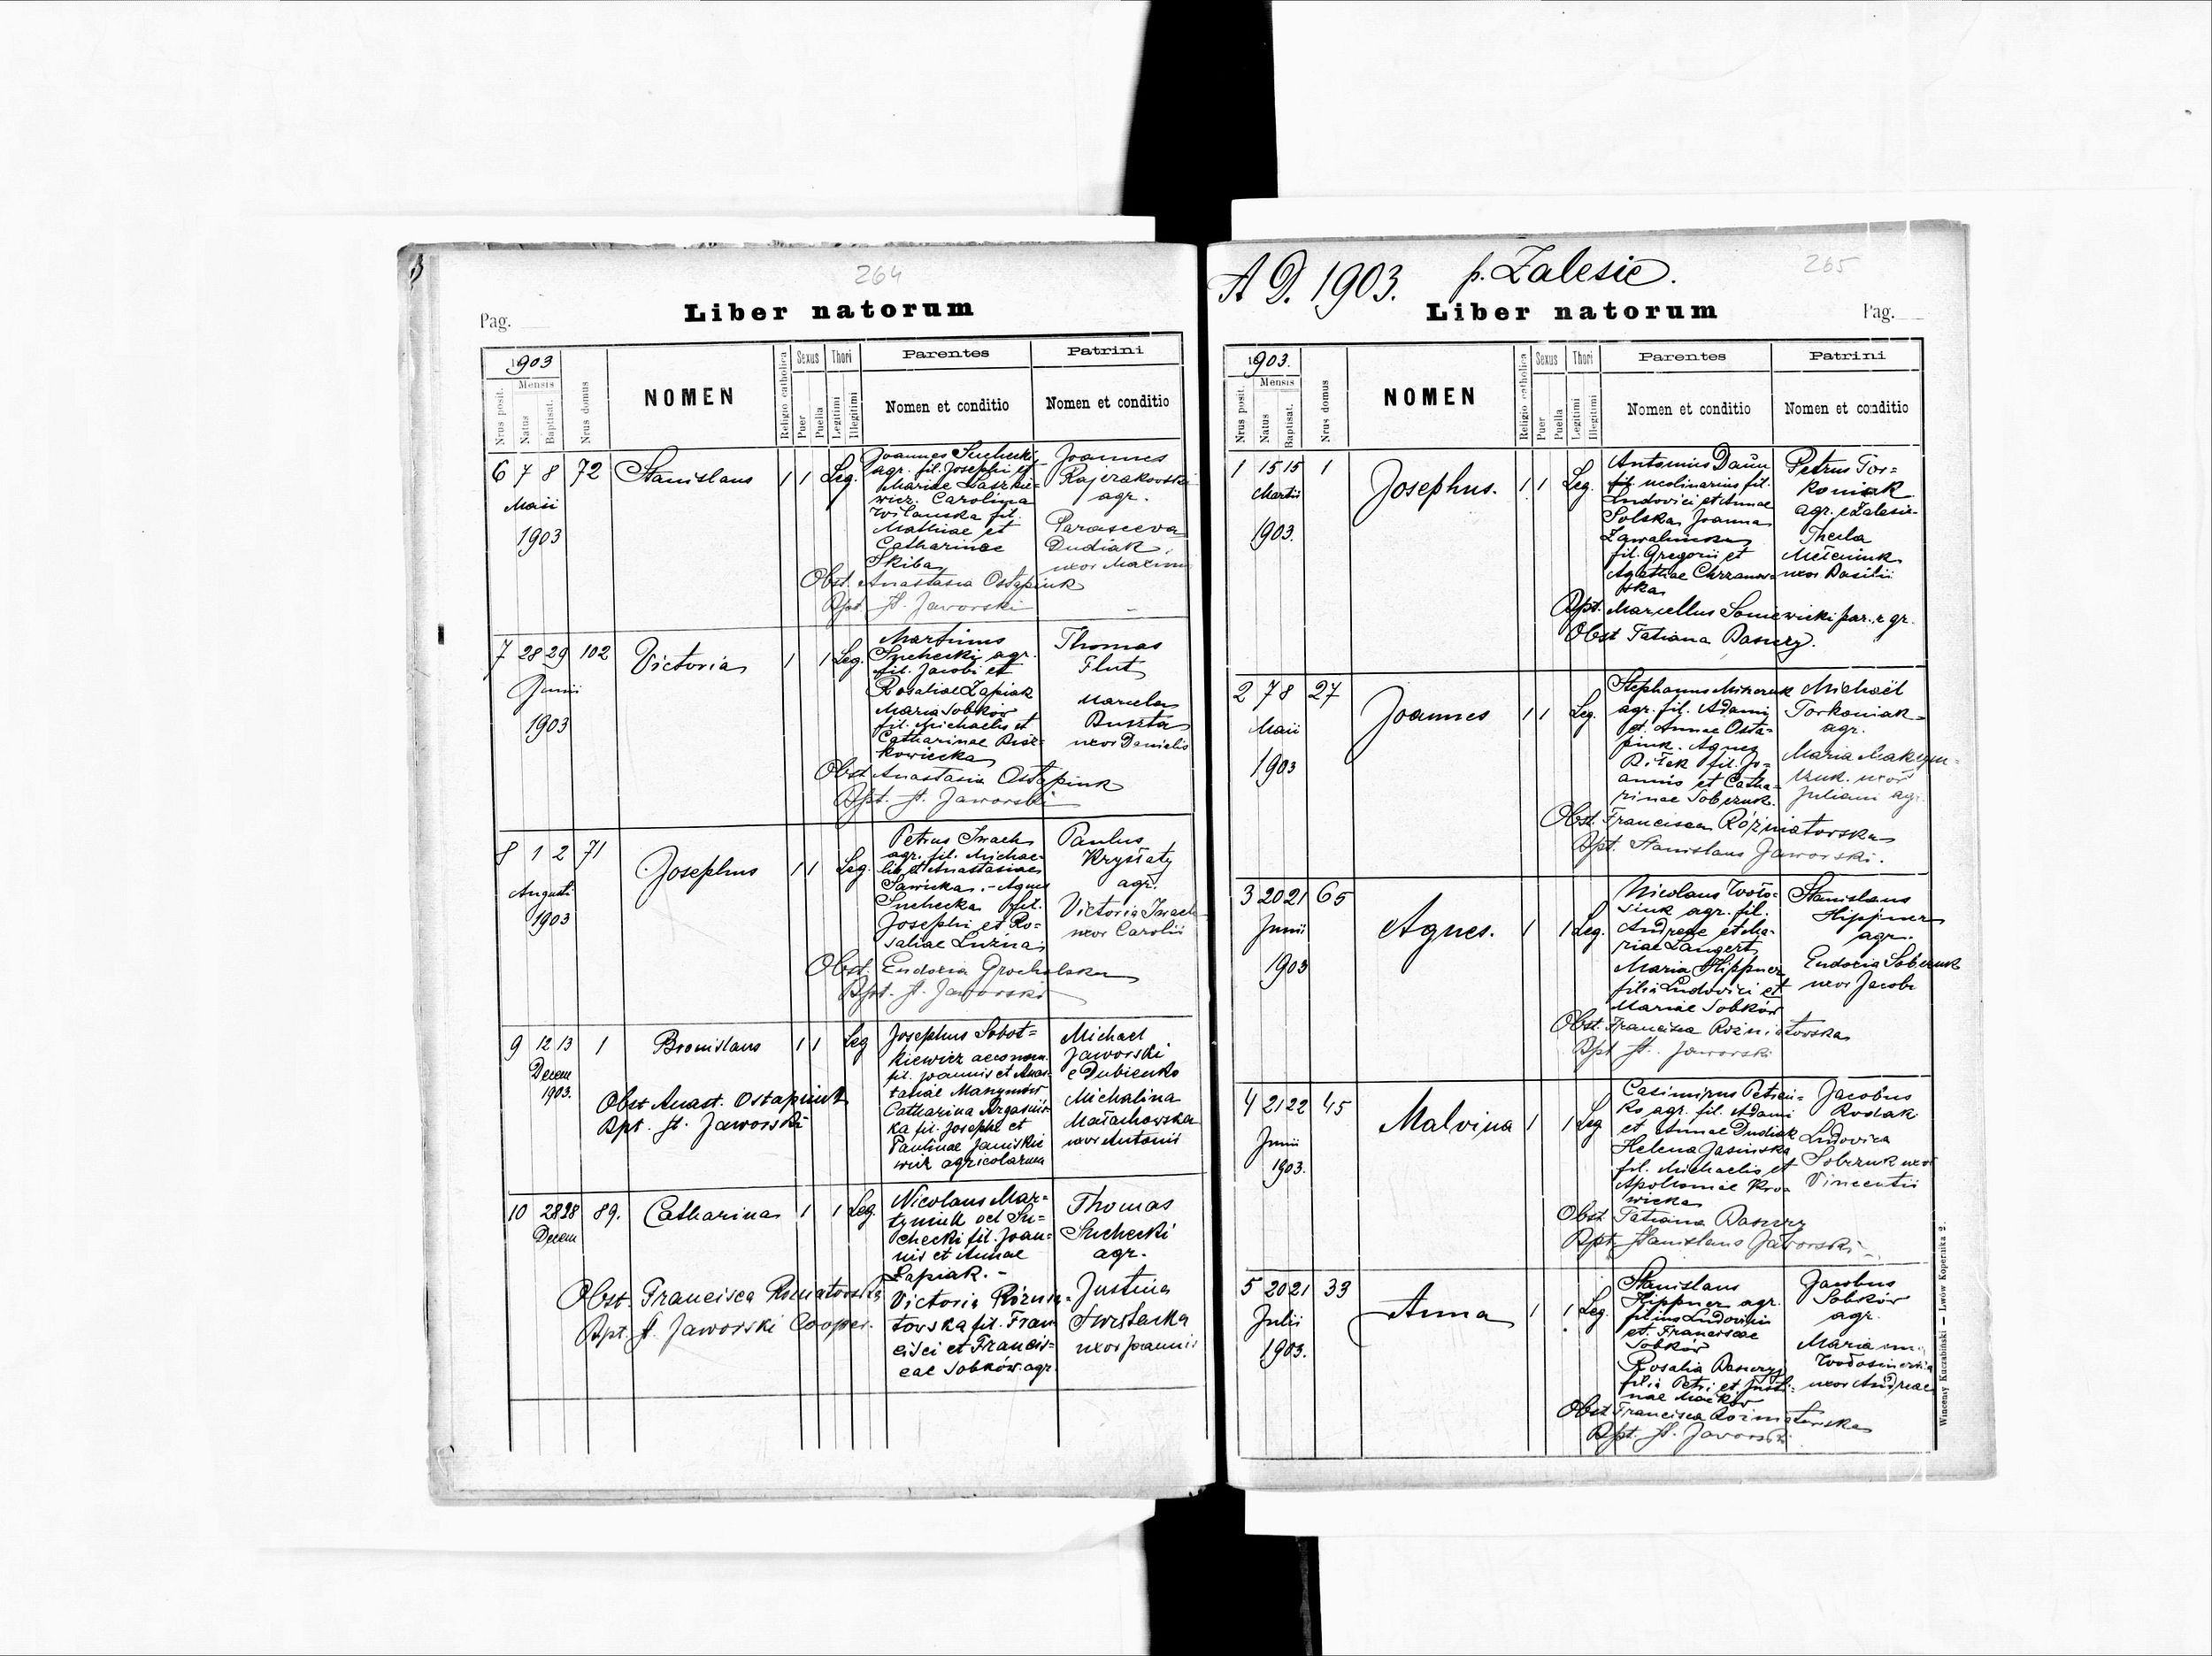 264
Liber natorum
Pag.
1903
Mensis
Nrus posit.
Natus
Baptisat.
Nrus domus
NOMEN
Religio catholica
Sexus
Puer
Puella
Thori
Legitimi
Illegitimi
Parentes
Nomen et conditio
Patrini
Nomen et conditio
6 7 8 72 Stanislaus 1 1 Leg.
Maii
1903
Joannes Suchecki
agr. fil. Josephi et
Mariae Laszkie-
wicz. Carolina
Wilanska fil.
Mathiae et
Catharinae
Skiba
Joannes
Rajzakowski
agr.
Parasceva
Dudiak
uxor Maximi
Obst. Anastasia Ostapiuk
Bpt. St. Jaworski
7 28 29 102 Victoria 1 1 Leg.
Junii
1903
Martinus
Suchecki agr.
fil. Jacobi et
Rosaliae Łapiak
Maria Sobków
fil. Michaelis et
Catharinae
Thomas
Flut
Marcela
Buszta
uxor Danielis
Obst. Anastasia Ostapiuk
Bpt. St. Jaworski
8 1 2 71 Josephus 1 1 Leg.
Augusti
1903
Petrus Iwach
agr. fil. Michae-
lis et Anastasiae
Sawicka. - Agnes
Suchecka fil.
Josephi et Ro-
saliae Luzna
Paulus
Kryształy
agr.
Victoria Iwach
uxor Carolii
Obst. Eudocia Grocholska
Bpt. St. Jaworski
9 12 13 1 Bronislaus 1 1 Leg
Decem
1903.
Josephus Sobot-
kiewicz aeconom.
fil. Joannis et Anas-
tasiae
Catharina
ka fil. Josephi et
Paulinae Janiskie
wicz agricolarum
Michael
Jaworski
e Dubienko
Michalina
Małachowska
uxor Antonii
Obst Anast. Ostapiuk
Bpt. St. Jaworski
10 28 28 89. Catharina 1 1 Leg.
Decem
Nicolaus Mar-
tyniuk vel Su-
checki fil. Joan-
nis et Annae
Łapiak. -
Victoria Róznia-
towska fil. Fran
cisci et Francis-
cae Sobków agr.
Thomas
Suchecki
agr.
Justina
uxor Joannis
Obst. Francisca Rozniatowska
Bpt. St. Jaworski Cooper.
265
A D. 1903. p. Zalesie.
Liber natorum
Pag.
1903.
Mensis
Nrus posit.
Natus
Baptisat.
Nrus domus
NOMEN
Religio catholica
Sexus
Puer
Puella
Thori
Legitimi
Illegitimi
Parentes
Nomen et conditio
Patrini
Nomen et conditio
1 15 15 1 Josephus. 1 1 Leg.
Martii
1903.
Antonius Daun
fil. molinarius fil.
Ludovici et Annae
Solska Joanna
Zawalinska
fil. Gregorii et
Agathae Chrzanow-
ska
Petrus Tor-
koniak
agr. e Zalesie
Thecla
uxor Basilii
Bpt. Marcellus Soniewicki par. r. gr.
Obst Tatiana Baswzy.
2 7 8 27 Joannes 1 1 Leg.
Maii
1903
Stephanus
agr. fil. Adami
et. Annae Osta-
piuk. Agnes
Bilek fil. Jo-
annis et Catha-
rinae Sobczuk.
Michaël
Torkoniak
agr.
Maria Maksym-
czuk. uxor
Juliani agr.
Obst. Francisca Rózniatowska
Bpt. Stanislaus Jaworski.
3 20 21 65 Agnes. 1 1 Leg.
Junii
1903
Nicolaus Woło-
siuk agr. fil.
Andreae et Ma-
riae Langert
Maria Hippner
filia Ludovici et
Mariae Sobków
Stanislaus
Hippner
agr.
Eudocia Sobczuk
uxor Jacobi
Obst. Francisca Rozniatowska
Bpt St. Jaworski
4 21 22 45 Malvina 1 1 Leg
Junii
1903.
Casimirus
ko agr. fil. Adami
et Annae Dudiak
Helena Jasinska
fil. Michaelis et
Apoloniae Kro-
wicka
Jacobus
Rodak
Ludovica
Sobczuk uxor
Vincentii
Obst. Tatiana Baswzy
Bpt. Stanislaus Jaworski
5 20 21 33 Anna 1 1 Leg.
Julii
1903.
Stanislaus
Hippner agr.
filius Ludovici
et. Franciscae
Sobków
Rosalia Baswzy
filia Petri et Justi-
nae Maćków
Jacobus
Sobków
agr.
Maria
uxor Andreae
Obst Francisca Rozniatowska
Bpt. St. Jaworski
Wincenty Kuczabiński — Lwów Kopernika 2.